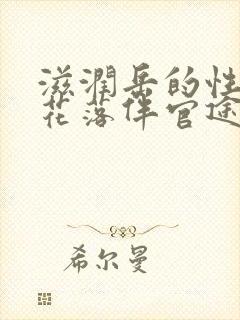 滋润岳的性
花落伴官途
希尔曼